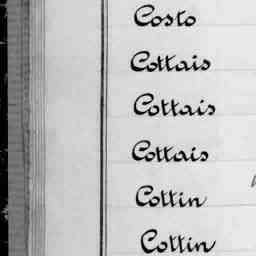 Costo
Cottais
Cottais
Cottais
Cottin
Cottin